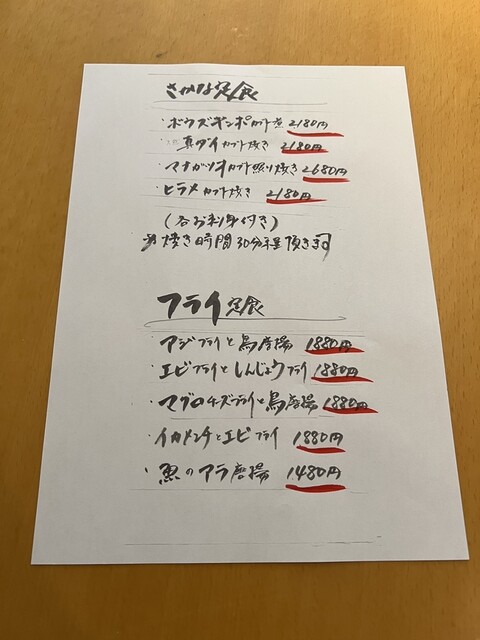 さかな定食
・ボウズギンポカブト煮 2180円
・真ダイカブト焼き 2180円
・マナガツオカブト照り焼き 2680円
・ヒラメカブト焼き 2180円
(各お刺身付き)
※焼き時間30分程頂きます
フライ定食
・アジフライと鳥唐揚 1880円
・エビフライとしんじょうフライ 1880円
・マグロチーズフライと鳥唐揚 1880円
・イカメンチとエビフライ 1880円
・魚のアラ唐揚 1480円